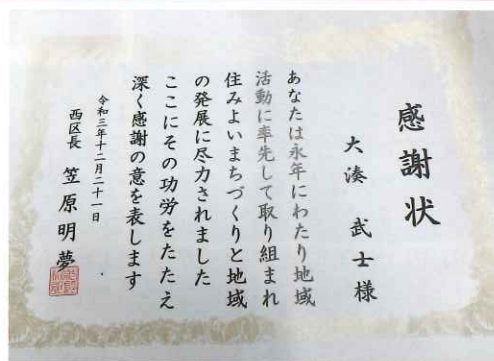 感謝状
大湊 武士様
あなたは永年にわたり地域
活動に率先して取り組まれ
住みよいまちづくりと地域
の発展に尽力されました
ここにその功労をたたえ
深く感謝の意を表します
令和三年十二月二十一日
西区長 笠原明夢